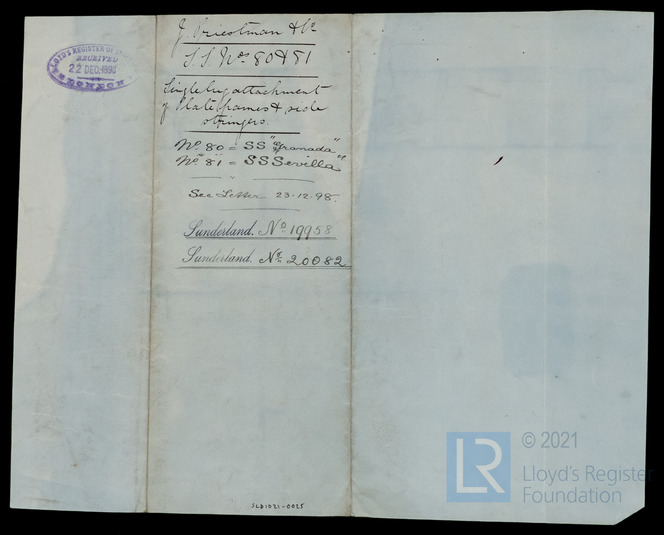 LLOYD'S REGISTER OF
RECEIVED
22 DEC. 1898
J. Priestman & Co
S.S. Nos 80 & 81
Single lug attachment
of Plate frames & side
stringers.
No. 80 = SS "Granada"
No. 81 = SS Sevilla"
See Letter 23.12.98.
Sunderland. No. 19958
Sunderland. No. 20082
SLD1021-0025
LR
© 2021
Lloyd's Register
Foundation